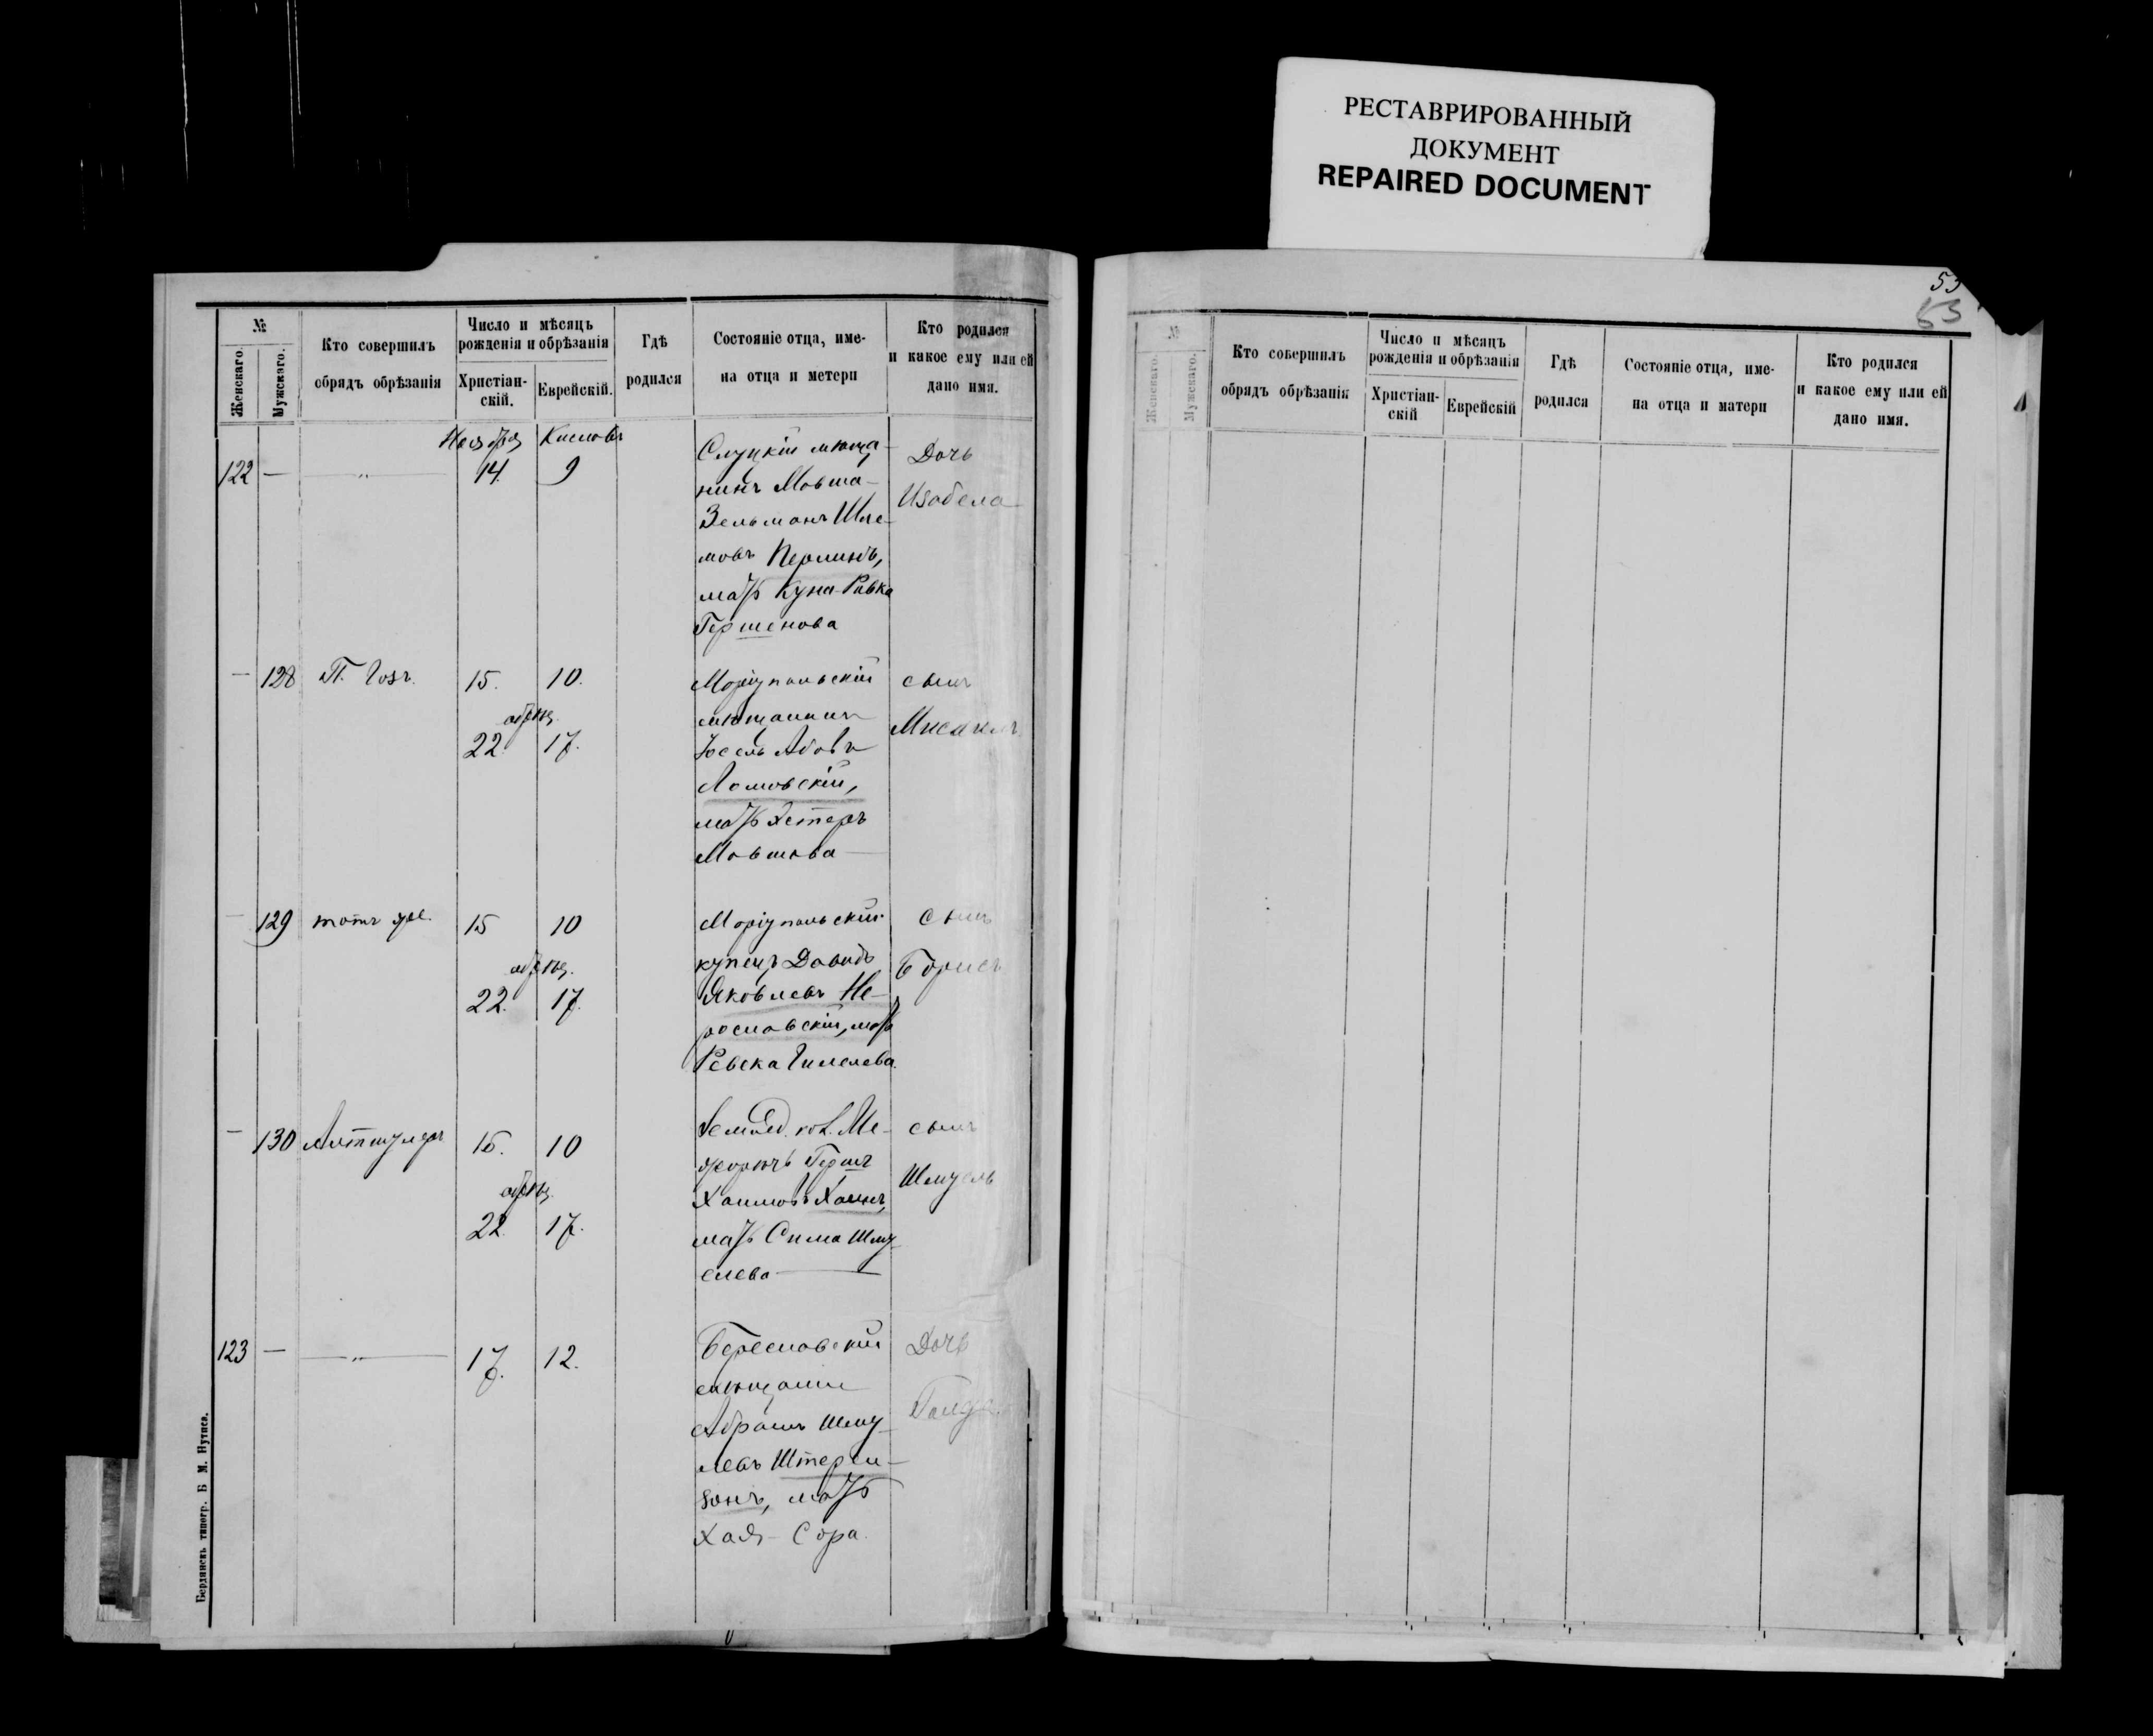 РЕСТАВРИРОВАННЫЙ
ДОКУМЕНТ
REPAIRED DOCUMENT
№
Женскаго.
Мужскаго.
Кто совершилъ
обрядъ обрѣзанія
Число и мѣсяцъ
рожденія и обрѣзанія
Христіан-
скій.
Еврейскій.
Гдѣ
родился
Состояніе отца, име-
на отца и метери
Кто родился
и какое ему или ей
дано имя.
Ноября Кислевъ
122 — 14. 9
Слуцкій мѣща-
нинъ Мовша-
Зельманъ Шле-
мовъ Перлинъ,
мать Куна-Ривка
Гершенова
Дочь
Изабела
— 128 П. Гозъ. 15. 10.
обрѣз.
22. 17.
Маріупольскій
мѣщанинъ
Іосель Абовъ
Ломовскій,
мать Эстеръ
Мовшова
сынъ
Мисаилъ
— 129 тотъ же. 15 10
обрѣз.
22. 17.
Маріупольскій
купецъ Давидъ
Яковлевъ Не-
рославскій, мать
Ревека
сынъ
Борисъ
— 130 Алтшулеръ 15. 10
обрѣз.
22. 17.
Земled. кол. Ме-
жеречъ Гершъ
Хаимовъ Хаинъ,
мать Сима Шму-
елева
сынъ
Шмуель
123 — 17. 12.
Береславскій
мѣщанин
Абрамъ Шму-
левъ Штерен-
зонъ, мать
Хая-Сора.
Дочь
Голда.
Бердянскъ типогр. Б. М. Нутиса.
53
53
№
Женскаго.
Мужскаго.
Кто совершилъ
обрядъ обрѣзанія
Число и мѣсяцъ
рожденія и обрѣзанія
Христіан-
скій
Еврейскій
Гдѣ
родился
Состояніе отца, име-
на отца и матери
Кто родился
и какое ему или ей
дано имя.